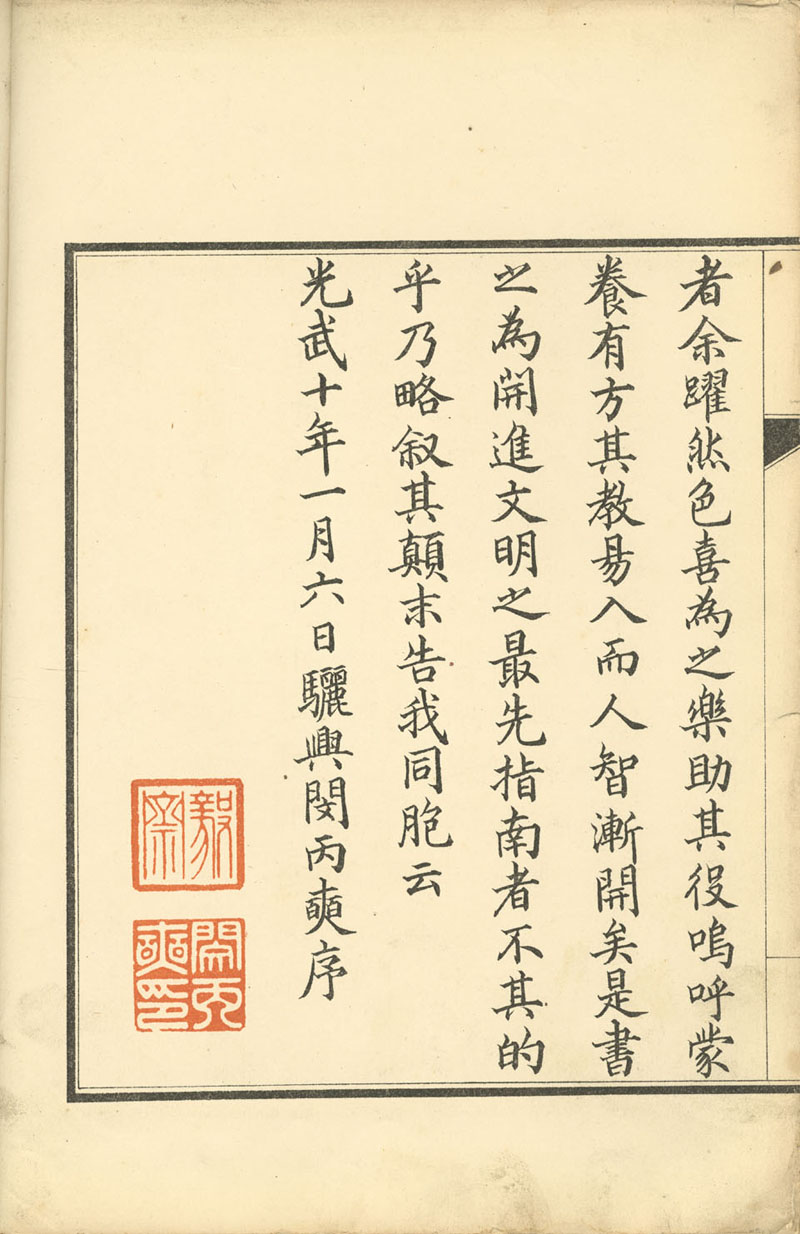 者余躍然色喜為之樂助其役嗚呼蒙
養有方其教易入而人智漸開矣是書
之為開進文明之最先指南者不其的
乎乃略叙其顛末告我同胞云
光武十年一月六日驪興閔丙奭序
毅齋
閔丙奭印